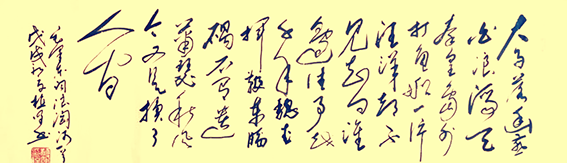 大雨落幽燕
白浪滔天
秦皇岛外
打鱼船一片
汪洋都不
见知向谁
边往事越
千年魏武
挥鞭东临
碣石有遗
萧瑟秋风
今又是换了
人间
毛泽东词浪淘沙
戊戌